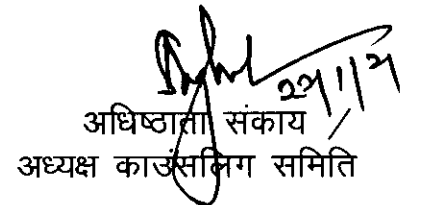 22/1/21
अधिष्ठाता संकाय
अध्यक्ष काउंसलिग समिति